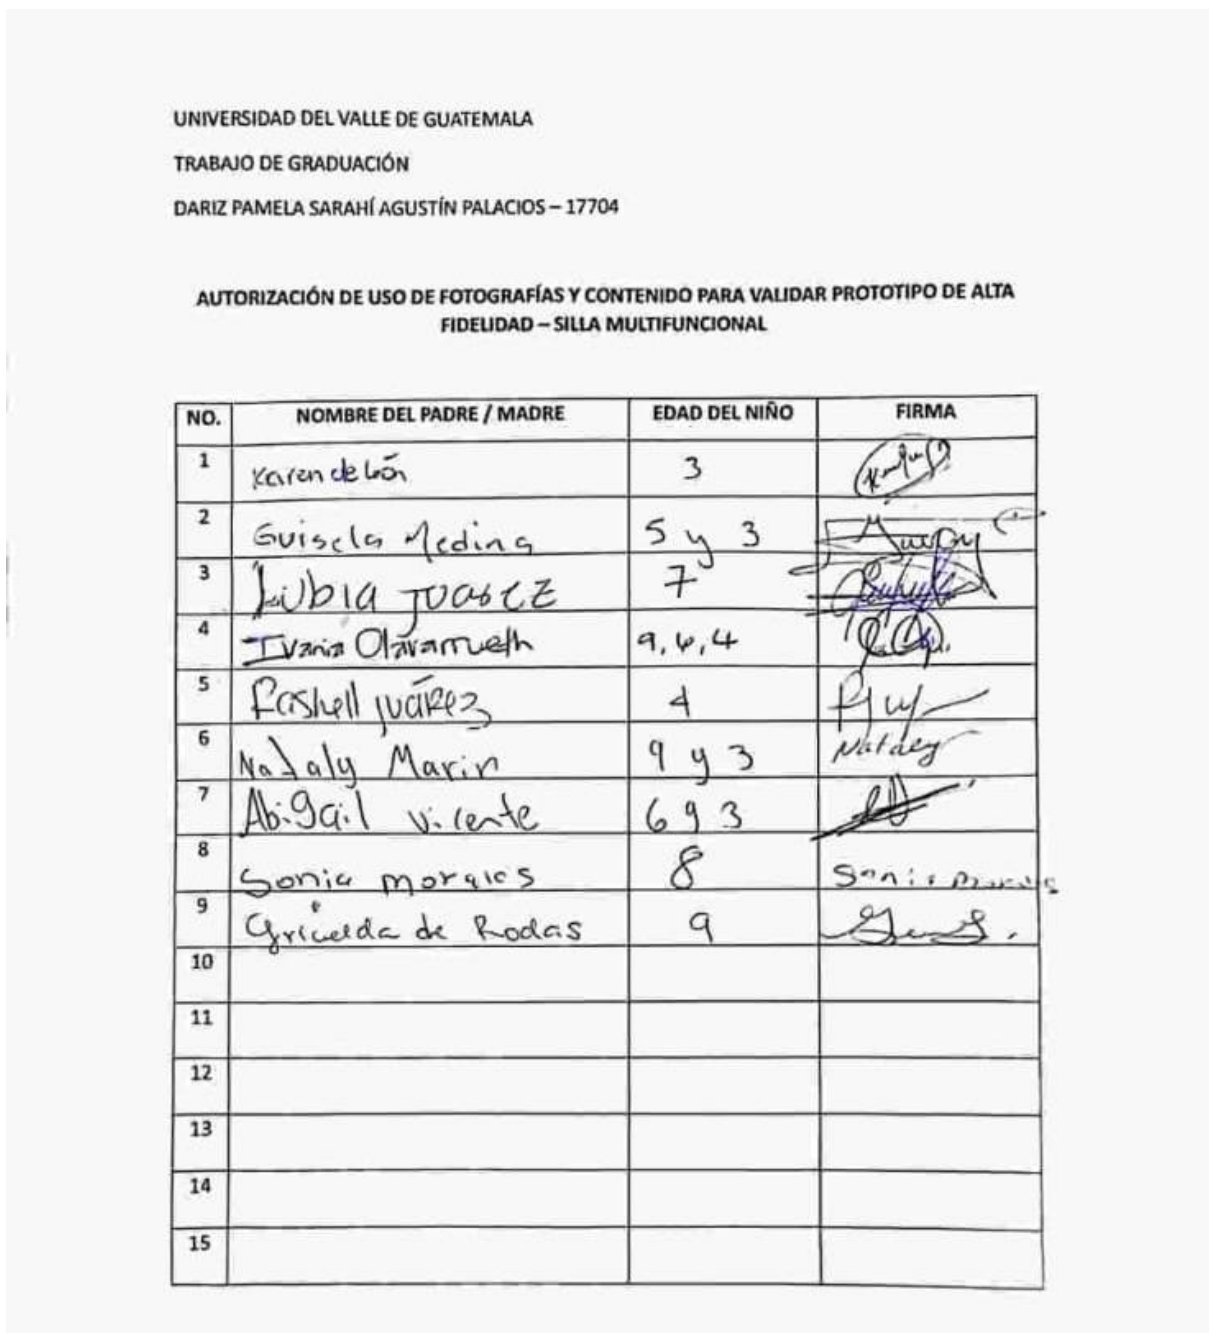 UNIVERSIDAD DEL VALLE DE GUATEMALA
TRABAJO DE GRADUACIÓN
DARIZ PAMELA SARAHÍ AGUSTÍN PALACIOS – 17704
AUTORIZACIÓN DE USO DE FOTOGRAFÍAS Y CONTENIDO PARA VALIDAR PROTOTIPO DE ALTA
FIDELIDAD – SILLA MULTIFUNCIONAL
NO. NOMBRE DEL PADRE / MADRE EDAD DEL NIÑO FIRMA
1 Karen de león 3
2 Guisela Medina 5 y 3
3 Lubia Juarez 7
4 Ivania 9, 6, 4
5 Rashell Juárez 4
6 Nataly Marin 9 y 3 Nataly
7 Abigail Vicente 6 y 3
8 Sonia Morales 8 Sonia Morales
9 Gricelda de Rodas 9
10
11
12
13
14
15